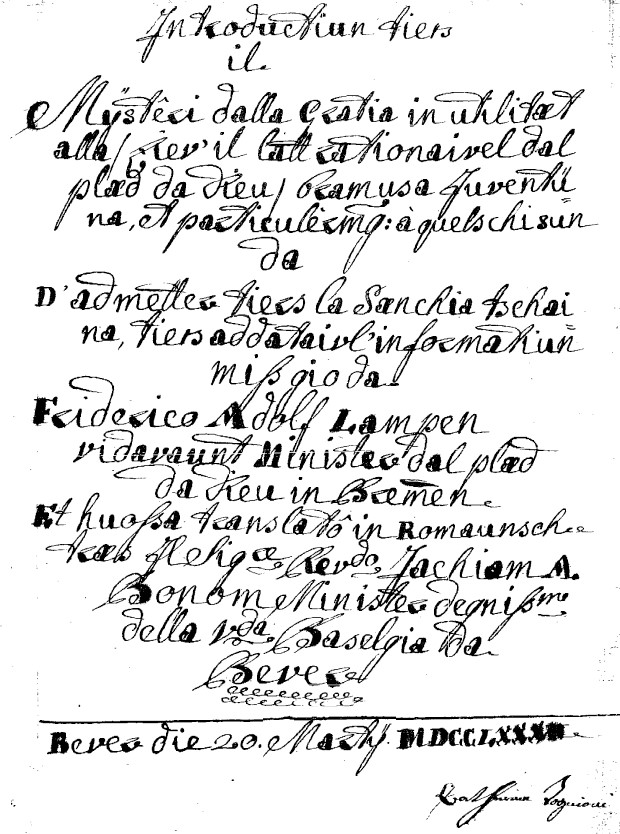 Introductiun tiers
il.
Mÿstêri dalla Gratia in utilitæt
alla / sier' il latt rationaivel dal
plæd da Dieu / bramusa Juventü
na, et particulérmg: à quels chi sun
da
D'admetter tiers la Sænchia tschai
na, tiers ad datai v l'informatiun
miss gio da.
Friderico Adolf Lampen
vidavaunt Minister dal plæd
da Dieu in Bremen.
Et huossa translatô in Romaunsch
træs Il Sigᵣₑ Revdo Jachiam A.
Bonom Minister degnissmo
della vda Baselgia da
Bever
Bever die 20. Martÿ. MDCCLXXX